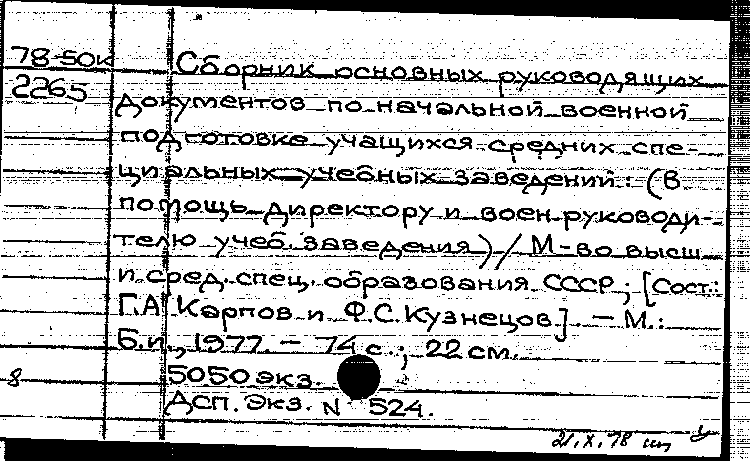 78-50к
2265
Сборник основных руководящих
документов по начальной военной
подготовке учащихся средних спе-
циальных учебных заведений: (В
помощь директору и воен. руководи-
телю учеб. заведения) / М-во высш.
и сред. спец. образования СССР; [Сост.:
Г.А. Карпов и Ф.С. Кузнецов]. – М.:
Б.и., 1977. – 74 с.; 22 см.
8
5050 экз.
Дсп. Экз. N 524.
21.X.78